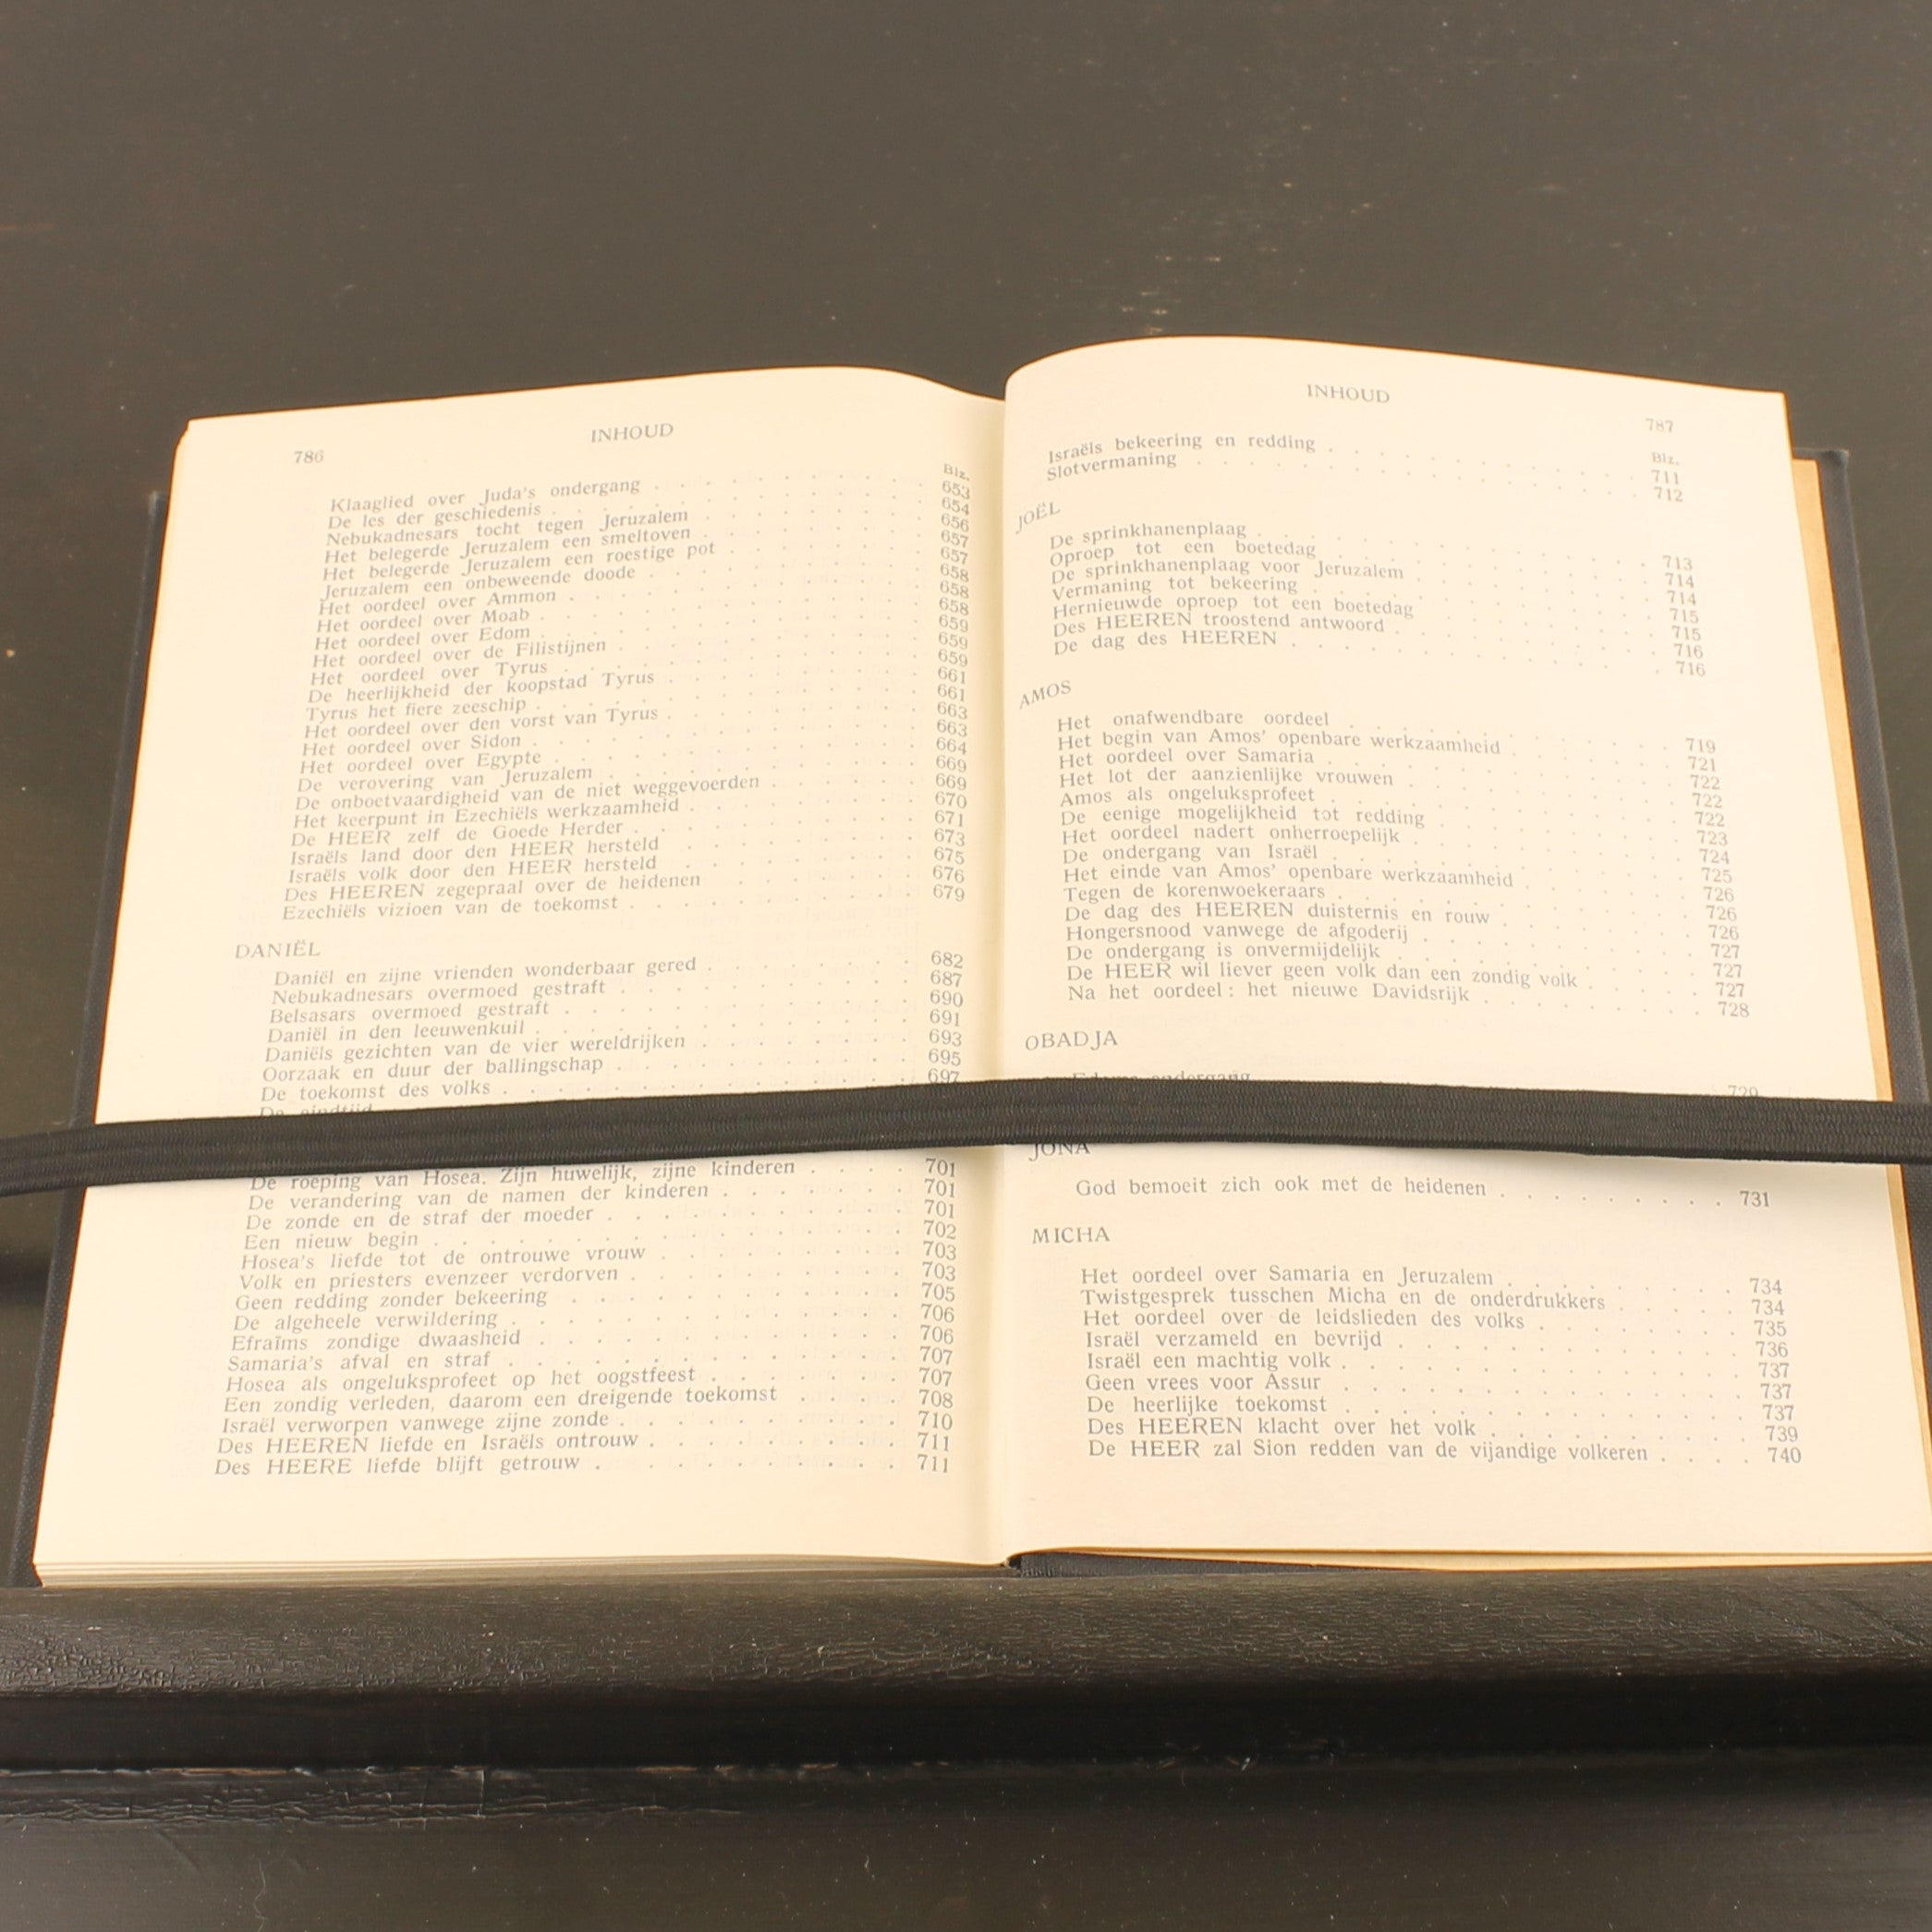 786
INHOUD
Blz.
Klaaglied over Juda's ondergang . . . . . . . . . . 653
De les der geschiedenis . . . . . . . . . . 654
Nebukadnesars tocht tegen Jeruzalem . . . . . . . . 656
Het belegerde Jeruzalem een smeltoven . . . . . . . . 657
Het belegerde Jeruzalem een roestige pot . . . . . . . 657
Jeruzalem een onbeweende doode . . . . . . . . . 658
Het oordeel over Ammon . . . . . . . . . . 658
Het oordeel over Moab . . . . . . . . . . 658
Het oordeel over Edom . . . . . . . . . . 659
Het oordeel over de Filistijnen . . . . . . . . . 659
Het oordeel over Tyrus . . . . . . . . . . 659
De heerlijkheid der koopstad Tyrus . . . . . . . . 661
Tyrus het fiere zeeschip . . . . . . . . . . 661
Het oordeel over den vorst van Tyrus . . . . . . . . 663
Het oordeel over Sidon . . . . . . . . . . 663
Het oordeel over Egypte . . . . . . . . . . 664
De verovering van Jeruzalem . . . . . . . . . 669
De onboetvaardigheid van de niet weggevoerden . . . . . 669
Het keerpunt in Ezechiëls werkzaamheid . . . . . . . 670
De HEER zelf de Goede Herder . . . . . . . . . 671
Israëls land door den HEER hersteld . . . . . . . . 673
Israëls volk door den HEER hersteld . . . . . . . . 675
Des HEEREN zegepraal over de heidenen . . . . . . 676
Ezechiëls vizioen van de toekomst . . . . . . . . 679
DANIËL
Daniël en zijne vrienden wonderbaar gered . . . . . . . 682
Nebukadnesars overmoed gestraft . . . . . . . . . 687
Belsasars overmoed gestraft . . . . . . . . . . 690
Daniël in den leeuwenkuil . . . . . . . . . . 691
Daniëls gezichten van de vier wereldrijken . . . . . . . 693
Oorzaak en duur der ballingschap . . . . . . . . . 695
De toekomst des volks . . . . . . . . . . 697
De eindtijd
De roeping van Hosea. Zijn huwelijk, zijne kinderen . . . . 701
De verandering van de namen der kinderen . . . . . . 701
De zonde en de straf der moeder . . . . . . . . . 701
Een nieuw begin . . . . . . . . . . . 702
Hosea's liefde tot de ontrouwe vrouw . . . . . . . . 703
Volk en priesters evenzeer verdorven . . . . . . . . 703
Geen redding zonder bekeering . . . . . . . . . 705
De algeheele verwildering . . . . . . . . . . 706
Efraïms zondige dwaasheid . . . . . . . . . . 706
Samaria's afval en straf . . . . . . . . . . 707
Hosea als ongeluksprofeet op het oogstfeest . . . . . . 707
Een zondig verleden, daarom een dreigende toekomst . . . . 708
Israël verworpen vanwege zijne zonde . . . . . . . . 710
Des HEEREN liefde en Israëls ontrouw . . . . . . . 711
Des HEERE liefde blijft getrouw . . . . . . . . . 711
INHOUD
787
Blz.
Israëls bekeering en redding . . . . . . . . . . 711
Slotvermaning . . . . . . . . . . . . 712
JOËL
De sprinkhanenplaag . . . . . . . . . . 713
Oproep tot een boetedag . . . . . . . . . . 714
De sprinkhanenplaag voor Jeruzalem . . . . . . . . 714
Vermaning tot bekeering . . . . . . . . . . 715
Hernieuwde oproep tot een boetedag . . . . . . . . 715
Des HEEREN troostend antwoord . . . . . . . . . 716
De dag des HEEREN . . . . . . . . . . . 716
AMOS
Het onafwendbare oordeel . . . . . . . . . . 719
Het begin van Amos' openbare werkzaamheid . . . . . . 721
Het oordeel over Samaria . . . . . . . . . . 722
Het lot der aanzienlijke vrouwen . . . . . . . . . 722
Amos als ongeluksprofeet . . . . . . . . . . 722
De eenige mogelijkheid tot redding . . . . . . . . 723
Het oordeel nadert onherroepelijk . . . . . . . . . 724
De ondergang van Israël . . . . . . . . . . 725
Het einde van Amos' openbare werkzaamheid . . . . . . 726
Tegen de korenwoekeraars . . . . . . . . . . 726
De dag des HEEREN duisternis en rouw . . . . . . . 726
Hongersnood vanwege de afgoderij . . . . . . . . . 727
De ondergang is onvermijdelijk . . . . . . . . . 727
De HEER wil liever geen volk dan een zondig volk . . . . . 727
Na het oordeel : het nieuwe Davidsrijk . . . . . . . . 728
OBADJA
Edoms ondergang 729
JONA
God bemoeit zich ook met de heidenen . . . . . . . . 731
MICHA
Het oordeel over Samaria en Jeruzalem . . . . . . . . 734
Twistgesprek tusschen Micha en de onderdrukkers . . . . . 734
Het oordeel over de leidslieden des volks . . . . . . . 735
Israël verzameld en bevrijd . . . . . . . . . . 736
Israël een machtig volk . . . . . . . . . . 737
Geen vrees voor Assur . . . . . . . . . . 737
De heerlijke toekomst . . . . . . . . . . 737
Des HEEREN klacht over het volk . . . . . . . . . 739
De HEER zal Sion redden van de vijandige volkeren . . . . 740